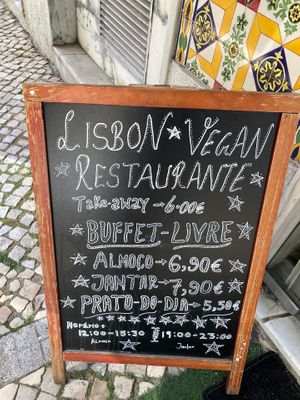 LISBON ★ VEGAN
RESTAURANTE
Take-away → 6.00€
BUFFET-LIVRE
ALMOÇO → 6,90€
JANTAR → 7,90€
PRATO-DO-DIA → 5,50€
Horário
12:00-15:30 19:00-23:00
Almoço Jantar